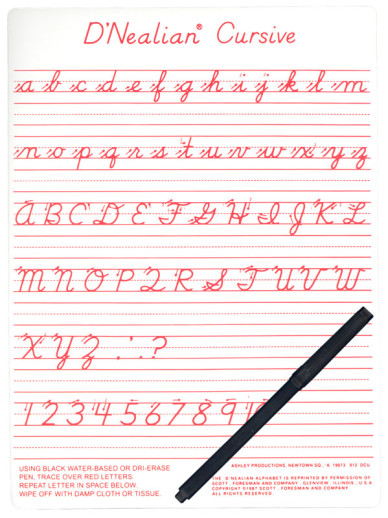 D'Nealian® Cursive
a b c d e f g h i j k l m
n o p q r s t u v w x y z
A B C D E F G H I J K L
M N O P Q R S T U V W
X Y Z . , . ?
1 2 3 4 5 6 7 8 9 10
USING BLACK WATER-BASED OR DRI-ERASE
PEN, TRACE OVER RED LETTERS.
REPEAT LETTER IN SPACE BELOW.
WIPE OFF WITH DAMP CLOTH OR TISSUE.
ASHLEY PRODUCTIONS, NEWTOWN SQ., 19073
THE D'NEALIAN ALPHABET IS REPRINTED BY PERMISSION OF
SCOTT, FORESMAN AND COMPANY, GLENVIEW, ILLINOIS, U.S.A
COPYRIGHT ©1987 SCOTT, FORESMAN AND COMPANY
ALL RIGHTS RESERVED.